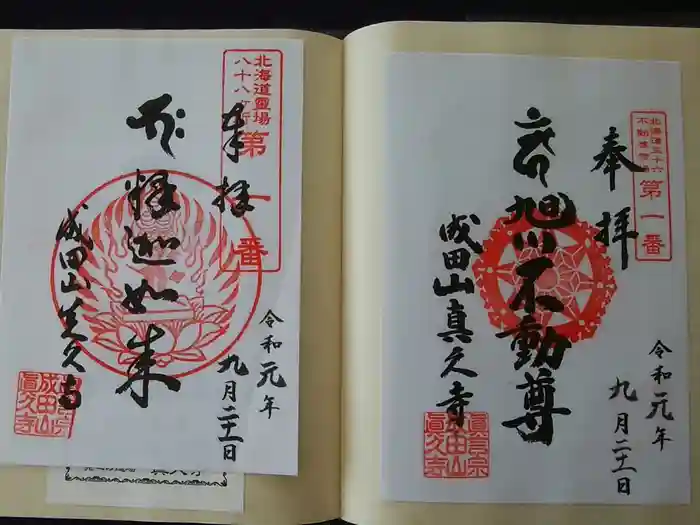 北海道三十六
不動尊霊場
第一番
奉拝
旭川不動尊
成田山真久寺
令和元年
九月二十一日
眞言宗
成田山
眞久寺
北海道霊場
八十八ヶ所
第一番
奉拝
釋迦如来
成田山真久寺
令和元年
九月二十一日
成田山
眞久寺